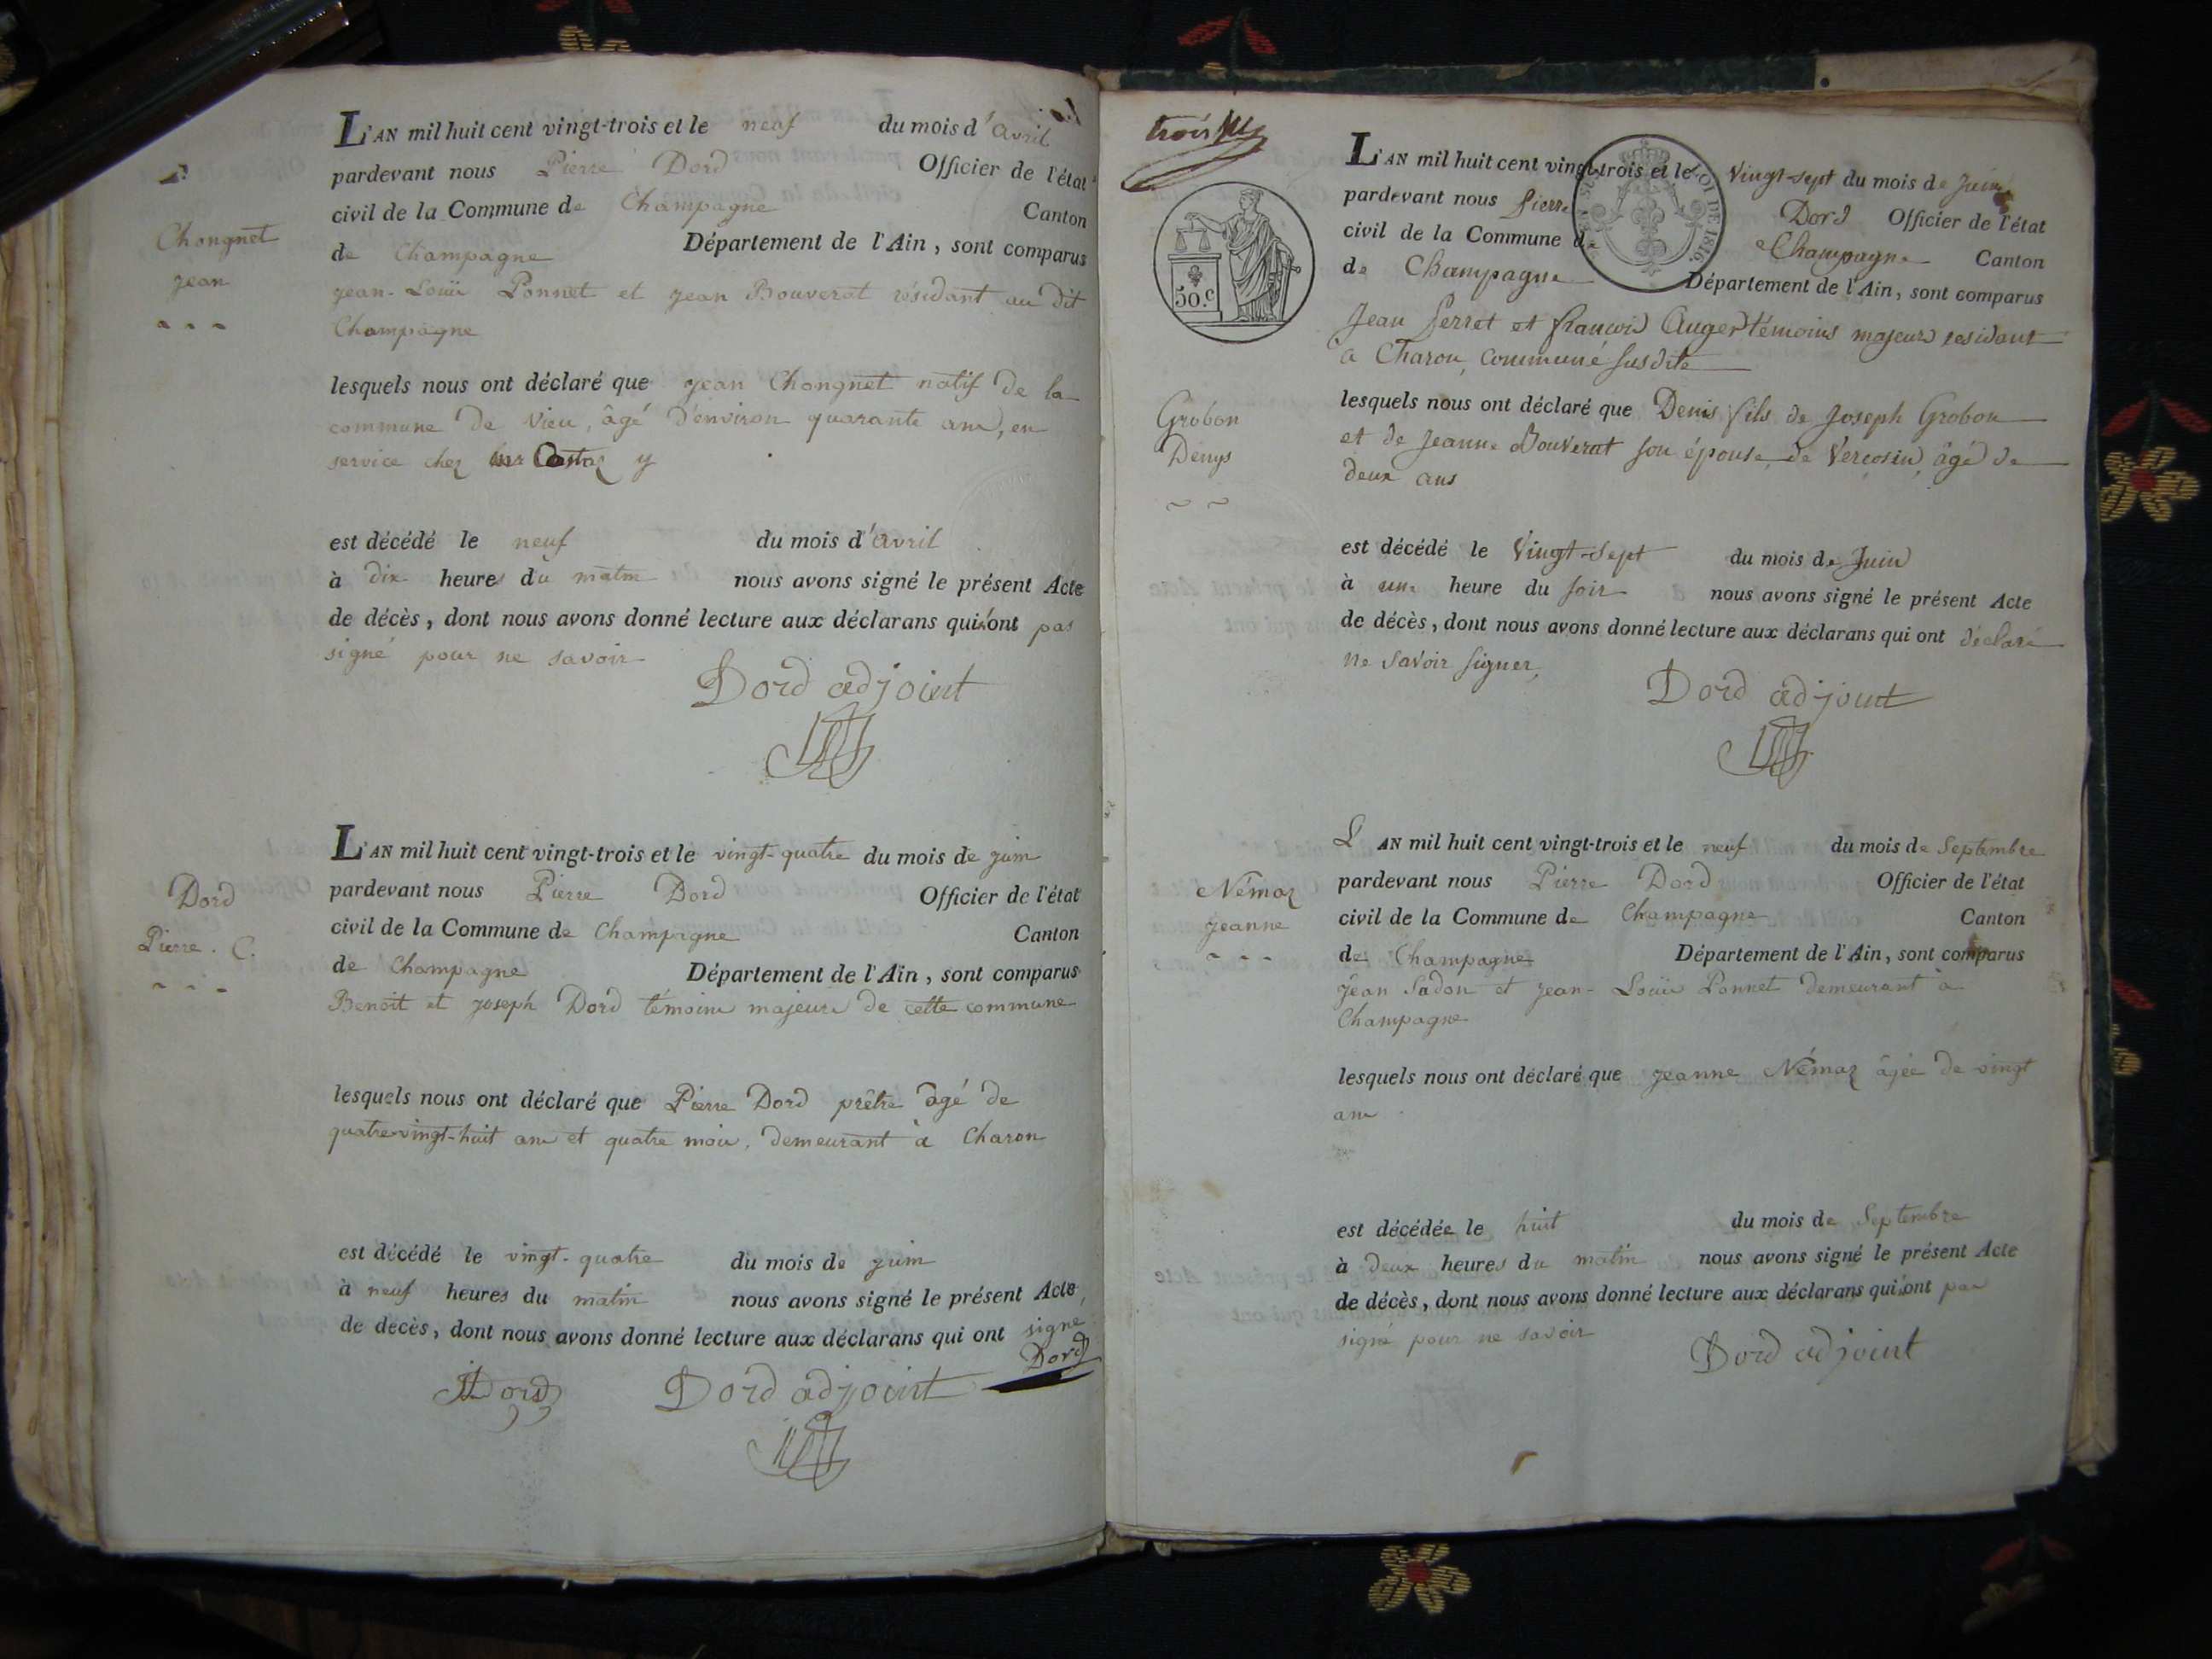 Chongnet
Jean
L'AN mil huit cent vingt-trois et le neuf du mois d'avril
pardevant nous Pierre Dord Officier de l'état
civil de la Commune de Champagne Canton
de Champagne Département de l'Ain, sont comparus
jean-Louis Ponnet et jean Bouverat résidant au dit
Champagne
lesquels nous ont déclaré que jean Chongnet natif de la
commune de Vieu, âgé d'environ quarante ans, en
service chez y
est décédé le neuf du mois d'avril
à dix heures du matin nous avons signé le présent Acte
de décès, dont nous avons donné lecture aux déclarans qui n'ont pas
signé pour ne savoir
Dord adjoint
Dord
Pierre. C.
L'AN mil huit cent vingt-trois et le vingt-quatre du mois de juin
pardevant nous Pierre Dord Officier de l'état
civil de la Commune de Champagne Canton
de Champagne Département de l'Ain, sont comparus
Benoît et joseph Dord témoins majeurs de cette commune
lesquels nous ont déclaré que Pierre Dord prêtre âgé de
quatre-vingt-huit ans et quatre mois, demeurant à Charon
est décédé le vingt-quatre du mois de juin
à neuf heures du matin nous avons signé le présent Acte
de decès, dont nous avons donné lecture aux déclarans qui ont signé
Dord
Dord Dord adjoint
trois
50.c
LOI DE 1816.
Grobon
Denys
L'AN mil huit cent vingt-trois et le Vingt-sept du mois de Juin
pardevant nous Pierre Dord Officier de l'état
civil de la Commune de Champagne Canton
de Champagne Département de l'Ain, sont comparus
Jean Perret et françois Auger témoins majeurs residant
a Charon, commune susdite
lesquels nous ont déclaré que Denis fils de Joseph Grobon
et de Jeanne Bouverat son épouse, de Vercosin, âgé de
deux ans
est décédé le Vingt-Sept du mois de Juin
à une heure du soir nous avons signé le présent Acte
de décès, dont nous avons donné lecture aux déclarans qui ont déclaré
ne savoir signer,
Dord adjoint
Némoz
jeanne
L'AN mil huit cent vingt-trois et le neuf du mois de Septembre
pardevant nous Pierre Dord Officier de l'état
civil de la Commune de Champagne Canton
de Champagne Département de l'Ain, sont comparus
jean Sadon et jean-Louis Ponnet demeurant à
Champagne
lesquels nous ont déclaré que jeanne Némoz âgée de vingt
ans
est décédée le huit du mois de Septembre
à deux heures du matin nous avons signé le présent Acte
de décès, dont nous avons donné lecture aux déclarans qui n'ont pas
signé pour ne savoir
Dord adjoint